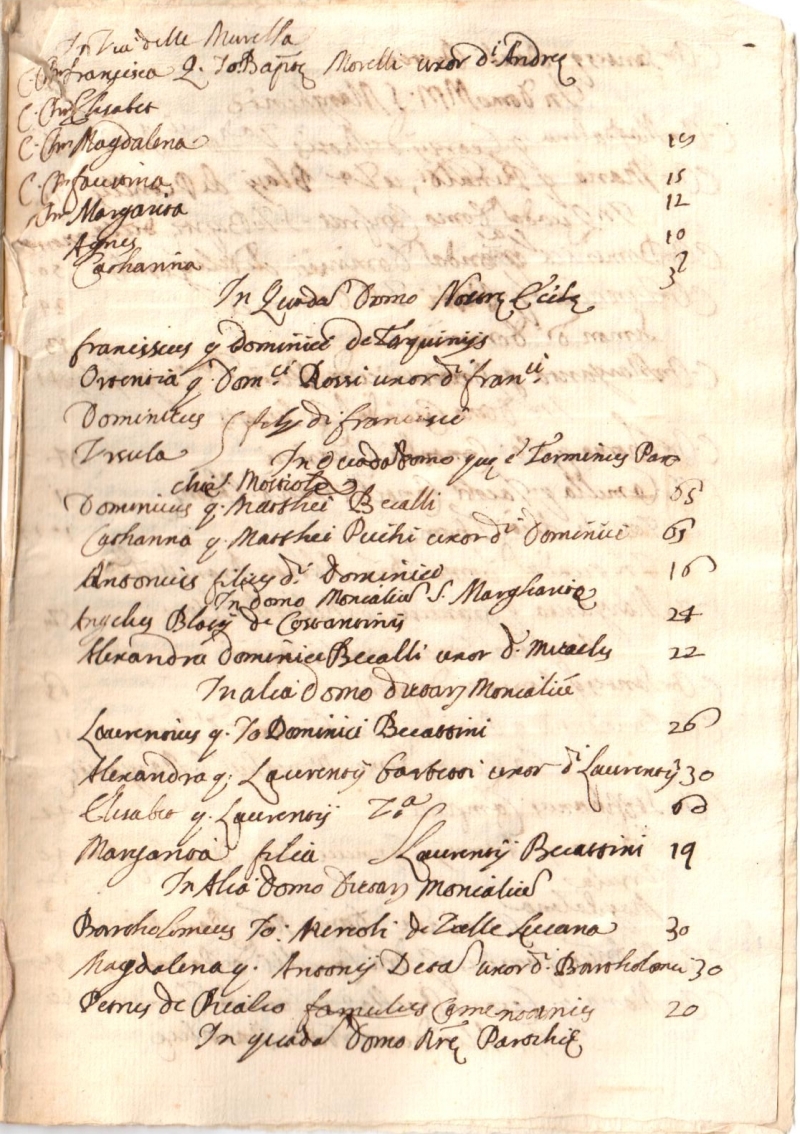 In Via delle Murella
C. Cm Francisca q. Jo: Bapte Morelli uxor di Andreę
C. Cm Elisabet
C. Cm Magdalena
C. Cm faustina 15
Cm Margarita 12
Agnes 10
Catharina 3
In Quada Domo Nostrę Ecclę
franciscus q Dominici de Tarquinijs
Ortentia q. Domci Rossi uxor di franci
Dominicus filij di francisci
Ursula
In quada domo quę è Terminus Paro
chię
Dominicus q. Matthei Becalli 65
Catharina q. Matthei uxor di Dominici 65
Antonius filius di Dominici 16
In Domo Monialiu S. Margharitę
Angelus Blasij de Costantinis 24
Alexandra Dominici Becalli uxor di 22
In alia Domo dictarȝ Monialiu
Laurentius q. Jo Dominici Becattini 26
Alexandra q. Laurentij uxor di Laurentij 30
Elisabet q. Laurentij
Margarita filia Laurentij Becattini 19
In Alia Domo Dictarȝ Monialiu
Bartholomeus Jo: de Lucana 30
Magdalena q. Antonij uxor di Bartholomei 30
Petrus de famulus 20
In quada Domo Parochię